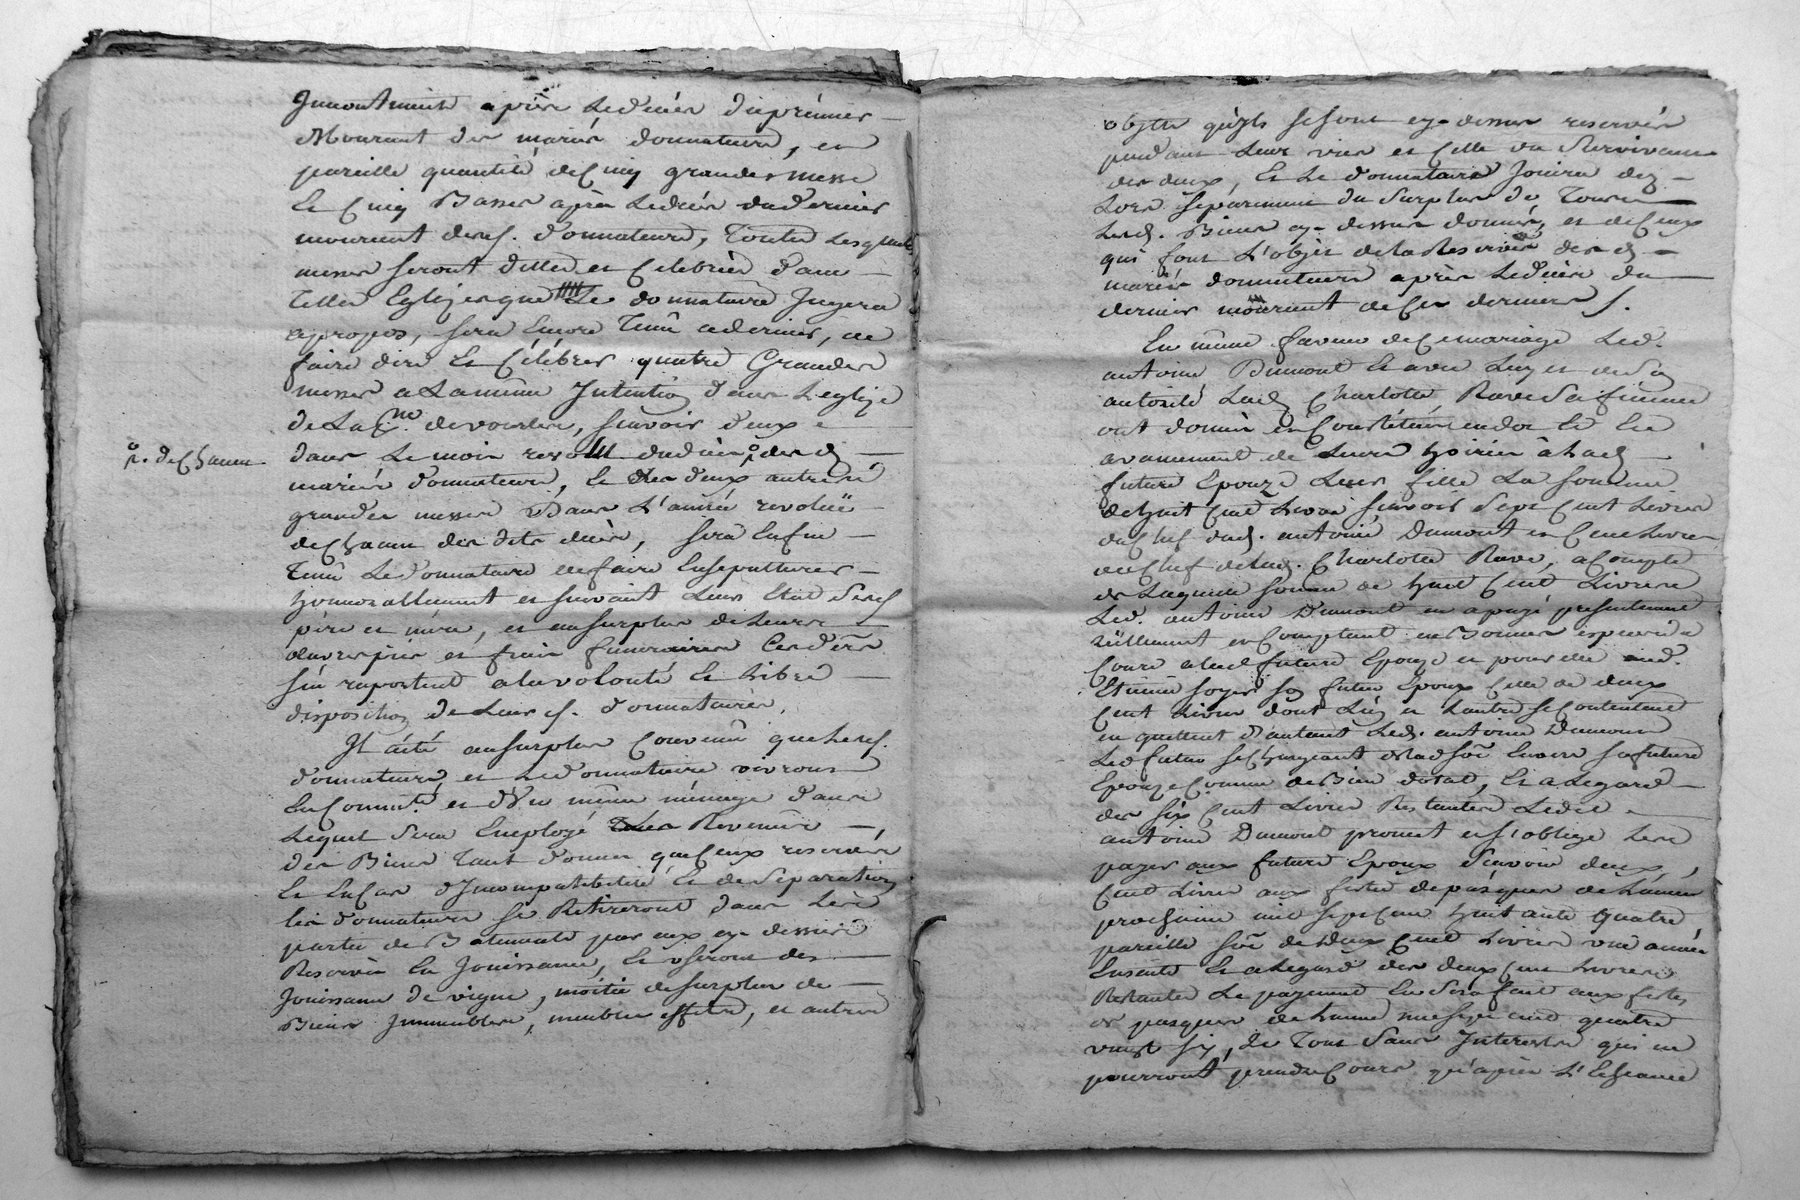 Incontinent après le décès du prémier
Mourant des mariés donnateurs, et
pareille quantité de Cinq grandes messe
Et Cinq Basses après le décès du dernier
mourant desd. donnateurs, Toutes lesquelles
messes seront dittes et Célébrées dans
telles Eglizes que Le donnataire Jugera
apropos, sera Encore Tenû ce dernier, de
faire dire Et Célébrer quatre Grandes
messes a La même Intention dans L'eglize
de La de vourles, sçavoir deux
dans Le mois revolû du décès desd
p. de Chacun
mariés donnateurs, Et Les deux autres
grandes messes Dans L'année revolüe
de Chacun des dits décès, sera Enfin
Tenû Le donnataire de faire Ensepulturer
honnorablement et suivant Leur Etat sesd
père et mère, et au surplus de Leurs
œuvres pies et frais funéraires Ces dérs
s'en raportent a la volonté Et Libre
disposition de Leurd. donnataire.
Il a été au surplus Convenû que Lesd.
donnateurs et Le donnataire vivront
En Commté et d'Un même ménage dans
Lequel sera Employé Les Revenûs
des Biens Tant donnés que Ceux reservés
Et En Cas d'Incompatibilité Et de Séparation
les donnateurs se Retireront dans Les
parties de Batiments par eux cy dessus
Reservés En Jouissance, Et useront des
Jouissance de vigne, moitié de surplus de
Biens Immeubles, meubles effets, et autres
objets qu'ils se sont cy-dessus reservés
pendant Leur vies et Celle du Survivant
des deux, Et Le donnataire Jouira dez
Lors séparément du Surplus de Tous
Lesd. Biens cy-dessus donnés, et de Ceux
qui font L'objet de la Reserves desd
mariés donnateurs après Le décès du
dernier mourant de Ces derniers.
En même faveur de Ce mariage Led.
antoine Dumont Et avec Luy et de Sa
autorité Lad. Charlotte Rave Sa femme
ont donné et Constitué en dot Et En
avancement de Leurs hoiries à Lad
future Epouze Leur fille La somme
de huit Cent Livres sçavoir Sept Cent Livres
du Chef dud. antoine Dumont et Cent Livres
du Chef de Lad. Charlotte Rave, a Compte
de Laquelle somme de huit Cent Livres
Led. antoine Dumont en a payé présentement
réellement et Comptant en Bonnes espèces de
Cours a Lad future Epouze et pour elle aud.
Etienne soyer son futur Epoux Celle de deux
Cent Livres dont L'un et L'autre se Contentent
en quittent d'autant Led. antoine Dumont
Led futur se Chargeant de lad sôe Envers sa future
Epouze Comme de Bien dotal, Et a Legard
des six Cent Livres Restantes Ledit
antoine Dumont promet et s'oblige Les
payer aux futurs Epoux sçavoir deux
Cent Livres aux fêtes de pâques de L'année
prochaine mil sept Cent huitante quatre
pareille sôe de deux Cent Livres une année
Ensuite Et a Legard des deux Cent Livres
Restantes Le payement En sera fait aux fêtes
de pasques de L'année mil sept cent quatre
vingt six, Le Tout Sans Interests qui ne
pourront prendre Cours qu'après L'Echéance